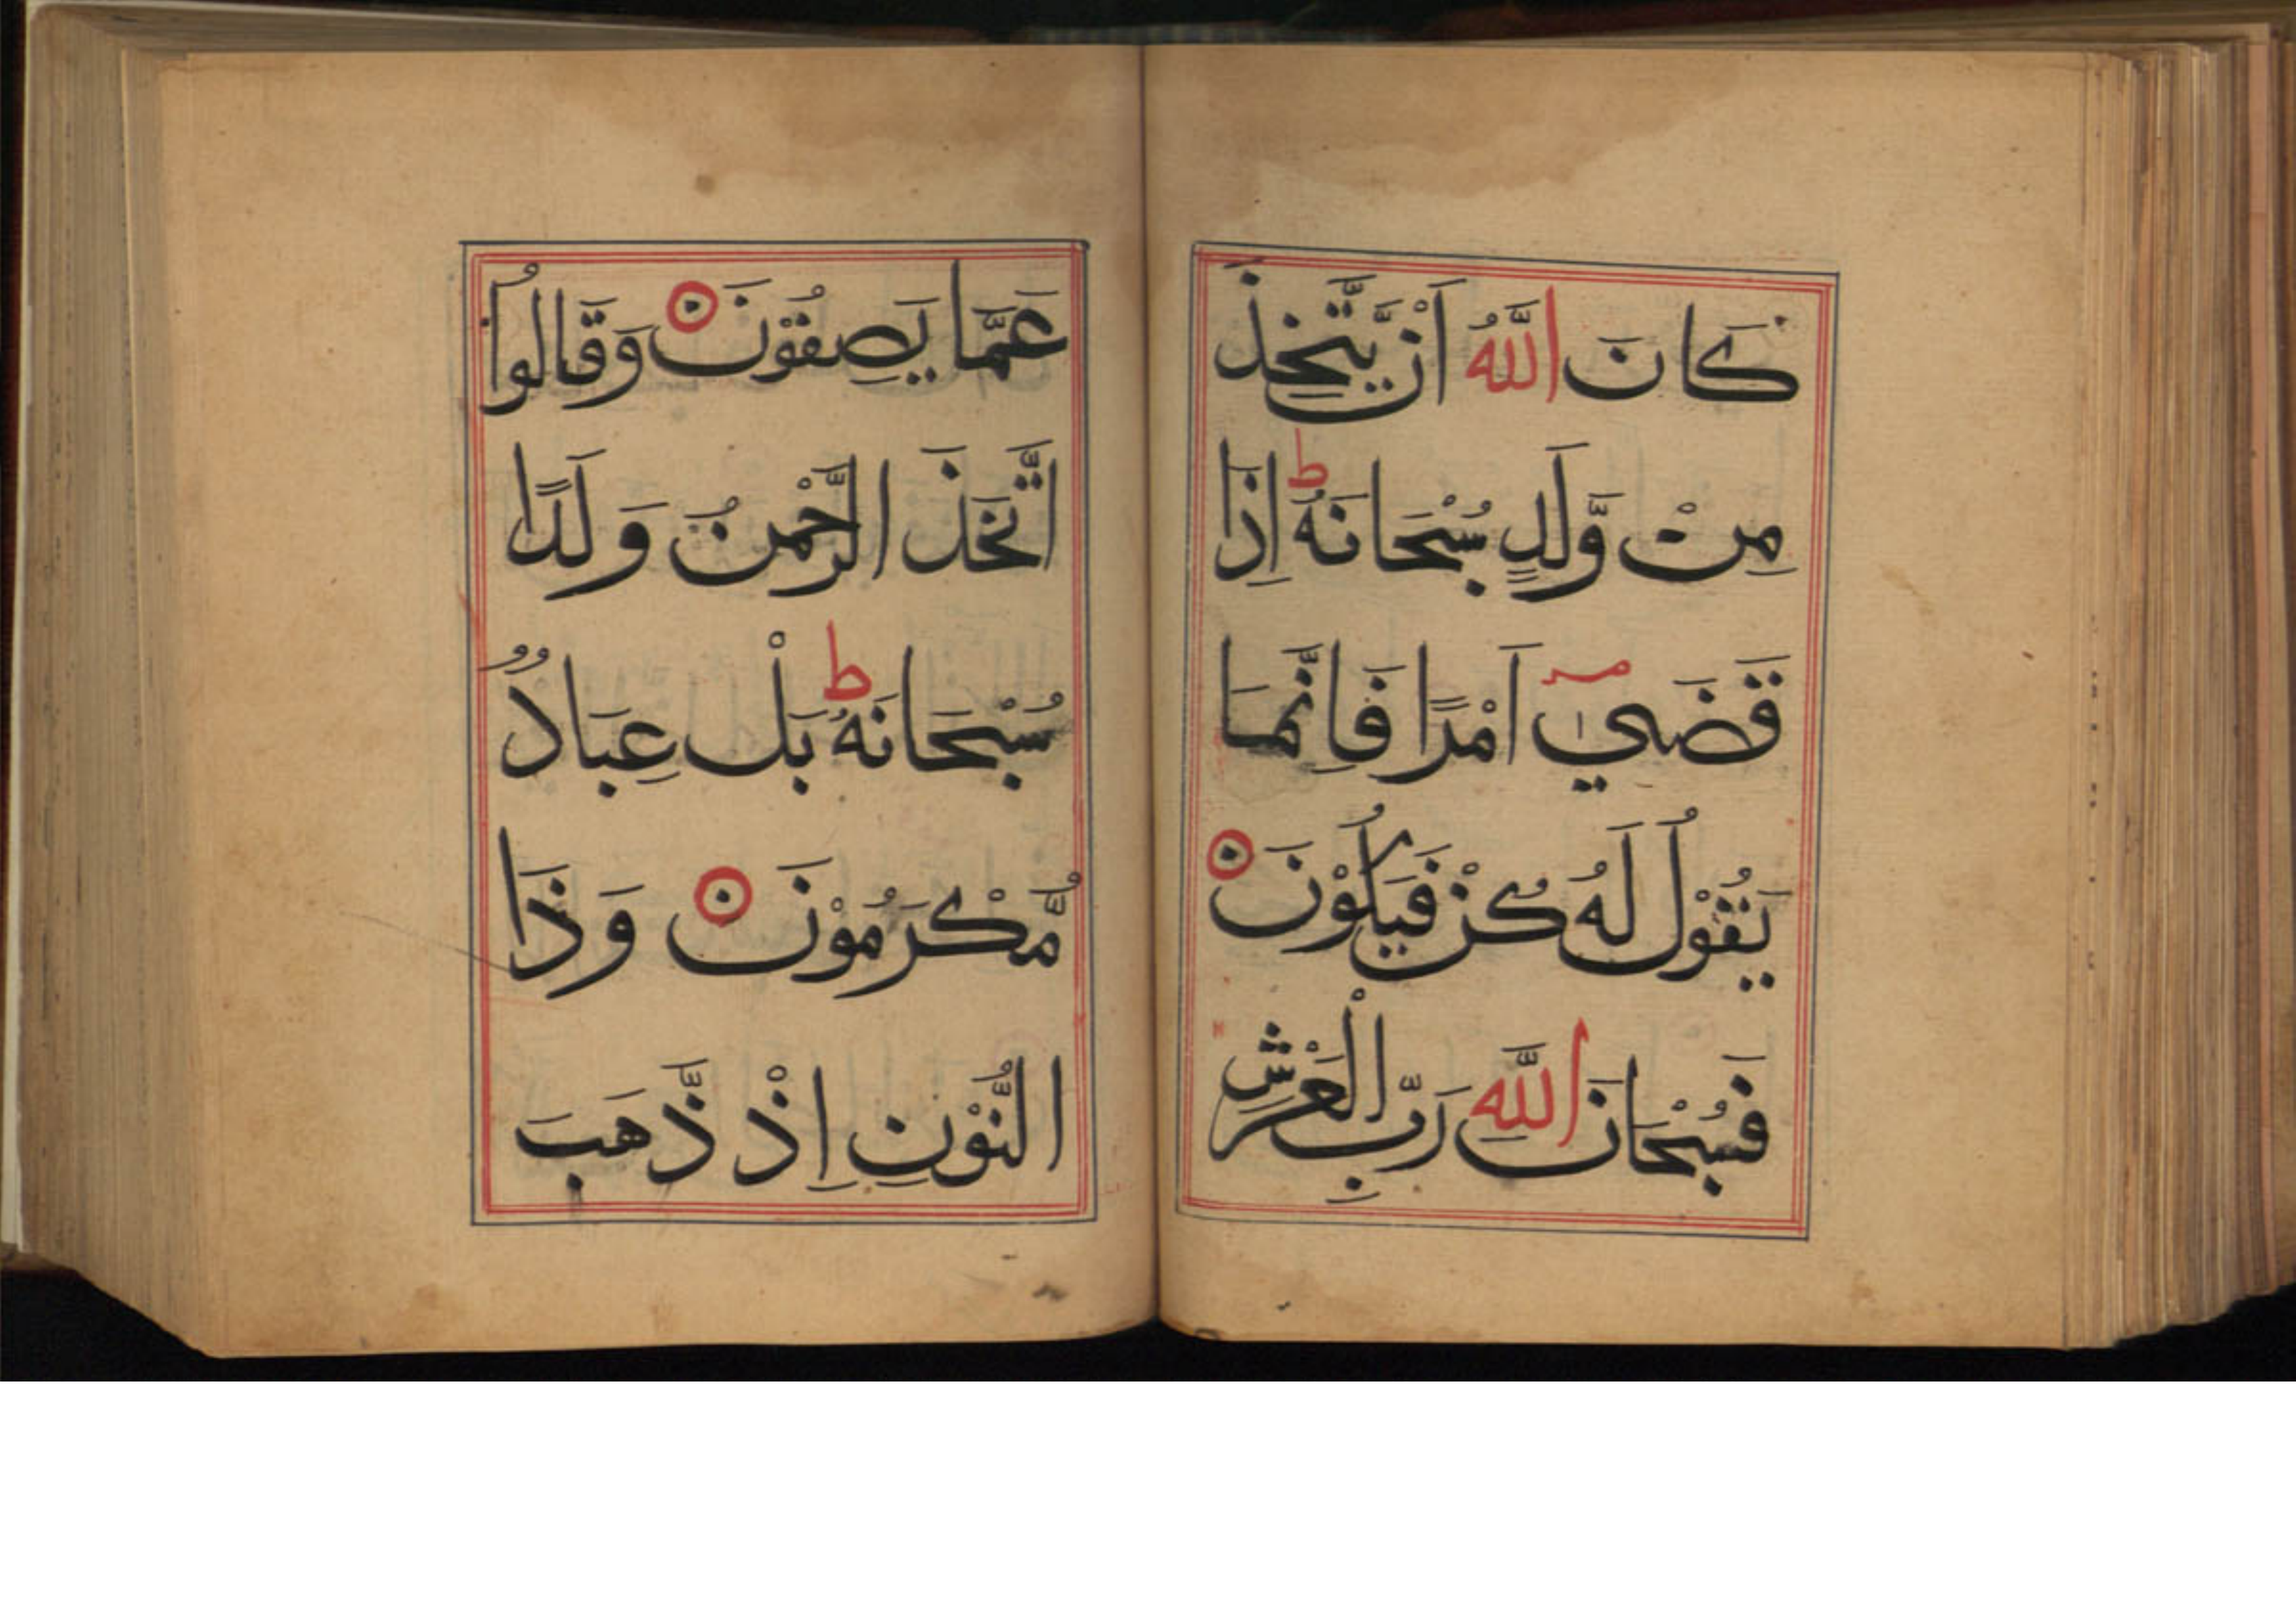 كَانَ اللَّهُ اَنْ يَّتَّخِذَ
مِنْ وَّلَدٍ سُبْحَانَهُ ط اِذَا
قَضَيٰ اَمْرًا فَاِنَّمَا
يَقُوْلُ لَهُ كُنْ فَيَكُوْنَ
فَسُبْحَانَ اللَّهِ رَبِّ الْعَرْشِ
عَمَّا يَصِفُوْنَ وَقَالُوا
اتَّخَذَ الرَّحْمٰنُ وَلَدًا
سُبْحَانَهُ ط بَلْ عِبَادٌ
مُّكْرَمُوْنَ وَذَا
النُّوْنِ اِذْ ذَّهَبَ